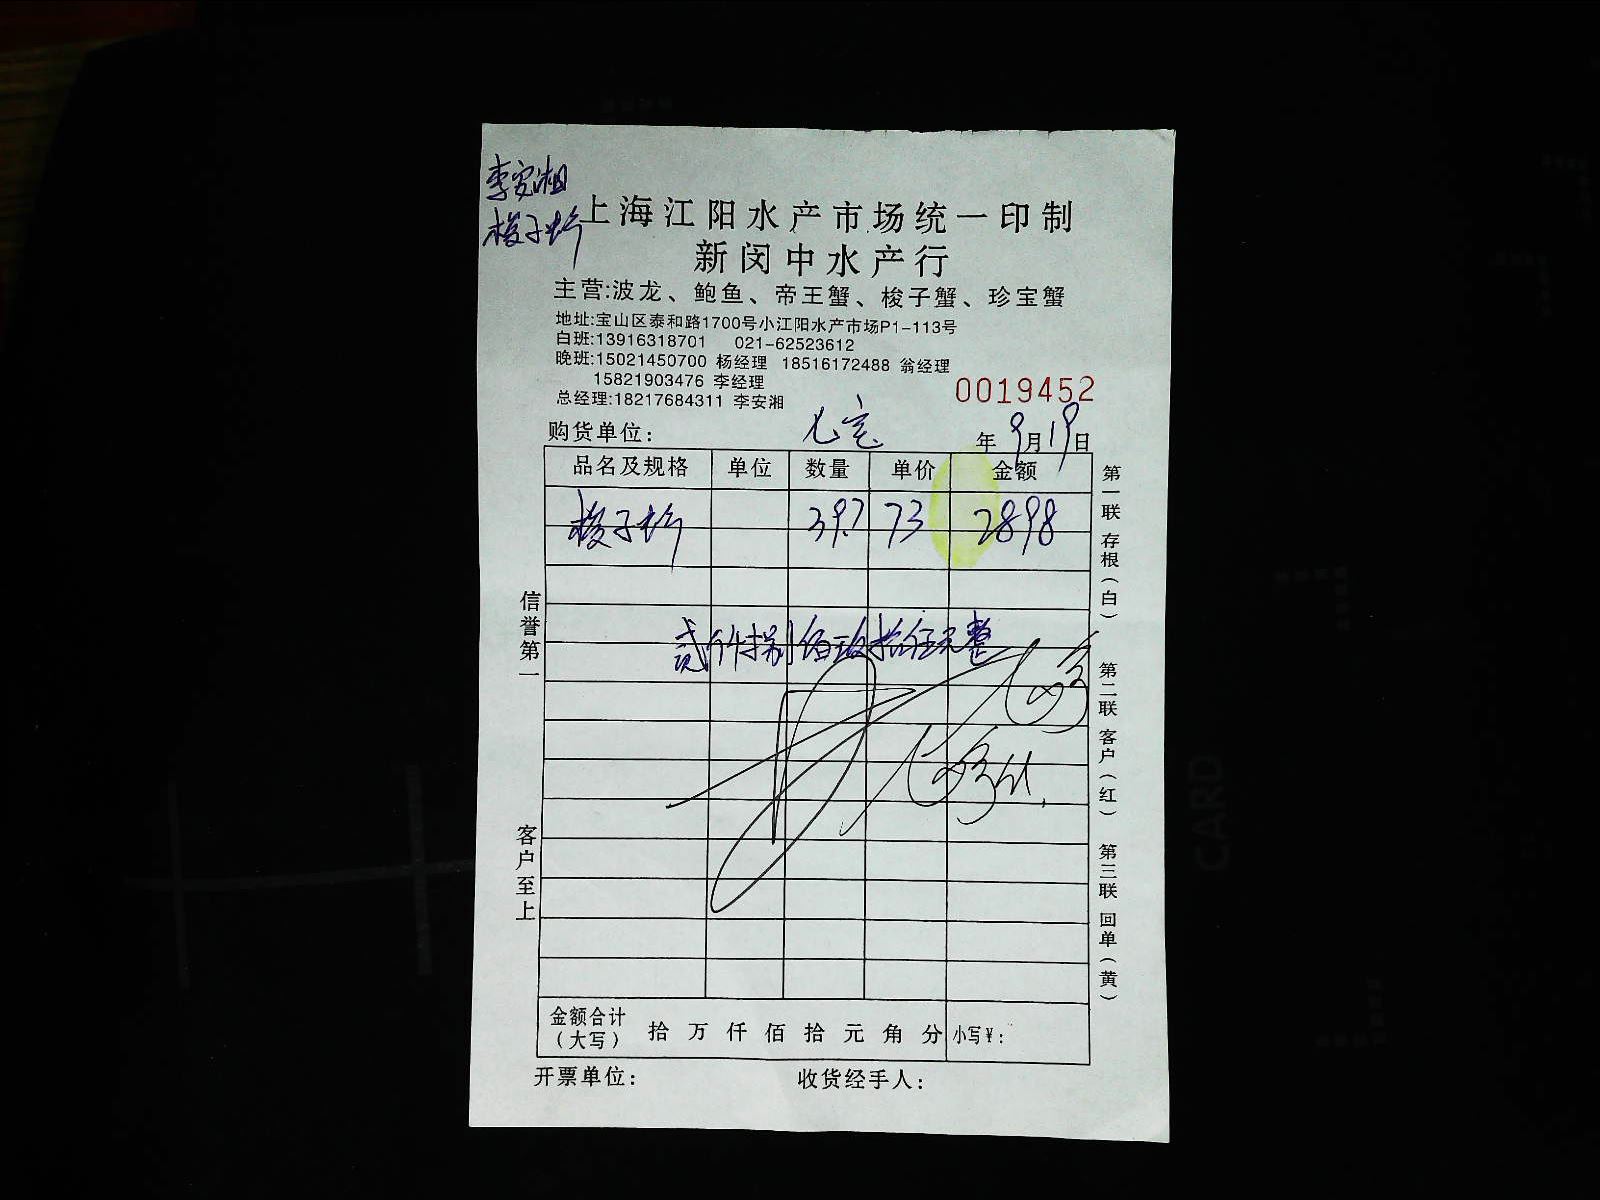 李安湘
梭子蟹
上海江阳水产市场统一印制
新闵中水产行
主营:波龙、鲍鱼、帝王蟹、梭子蟹、珍宝蟹
地址:宝山区泰和路1700号小江阳水产市场P1-113号
白班:13916318701 021-62523612
晚班:15021450700 杨经理 18516172488 翁经理
15821903476 李经理
总经理:18217684311 李安湘
0019452
购货单位:
年9月19日
品名及规格 单位 数量 单价 金额
梭子蟹 39.7 73 2898
元整
信誉第一
客户至上
第一联 存根(白)
第二联 客户(红)
第三联 回单(黄)
金额合计(大写) 拾 万 仟 佰 拾 元 角 分 小写¥:
开票单位: 收货经手人: